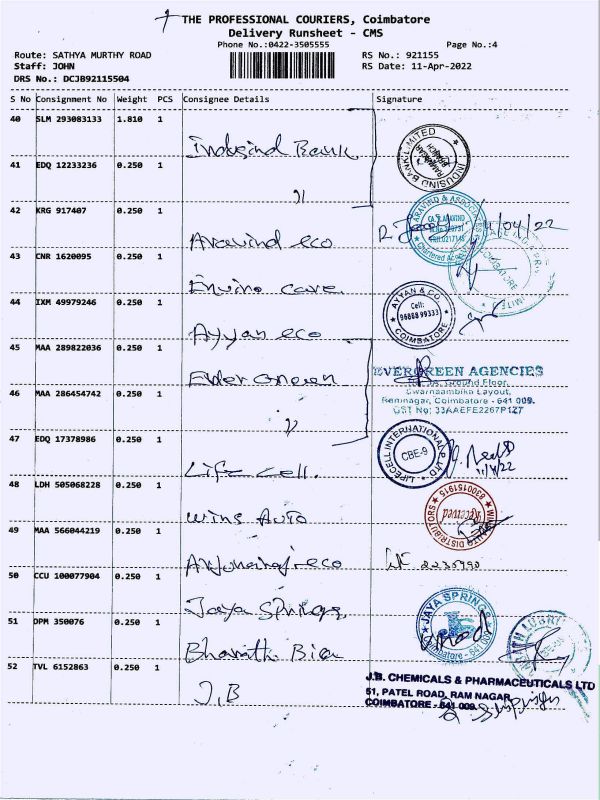 THE PROFESSIONAL COURIERS, Coimbatore
Delivery Runsheet - CMS
Phone No.:0422-3505555 Page No.:4
Route: SATHYA MURTHY ROAD RS No.: 921155
Staff: JOHN RS Date: 11-Apr-2022
DRS No.: DCJB92115504
S No Consignment No Weight PCS Consignee Details Signature
40 SLM 293083133 1.810 1
Indusind Bank
INDUSIND BANK LIMITED
41 EDQ 12233236 0.250 1
"
42 KRG 917407 0.250 1
Aravind &co
ARAVIND & ASSOCIATES
Chartered
11/04/22
43 CNR 1620095 0.250 1
Enviro care
COIMBATORE
44 IXM 49979246 0.250 1
Ayyan &co
AYYAN & CO
Cell:
96888 99333
COIMBATORE
45 MAA 289822036 0.250 1
Ever Green
EVERGREEN AGENCIES
Ground Floor,
Swarnaambika Layout,
Ramnagar, Coimbatore - 641 009.
GST No: 33AAEFE2267P1Z7
46 MAA 286454742 0.250 1
"
47 EDQ 17378986 0.250 1
Life cell.
LIFECELL INTERNATIONAL P LTD
CBE-9
48 LDH 505068228 0.250 1
Wins Auto
DISTRIBUTORS
Received
49 MAA 566044219 0.250 1
50 CCU 100077904 0.250 1
Jaya Springs
JAYA SPRINGS
Coimbatore - 641 009
51 DPM 350076 0.250 1
Bharath
52 TVL 6152863 0.250 1
J.B
J.B. CHEMICALS & PHARMACEUTICALS LTD
51, PATEL ROAD, RAM NAGAR,
COIMBATORE - 641 009.